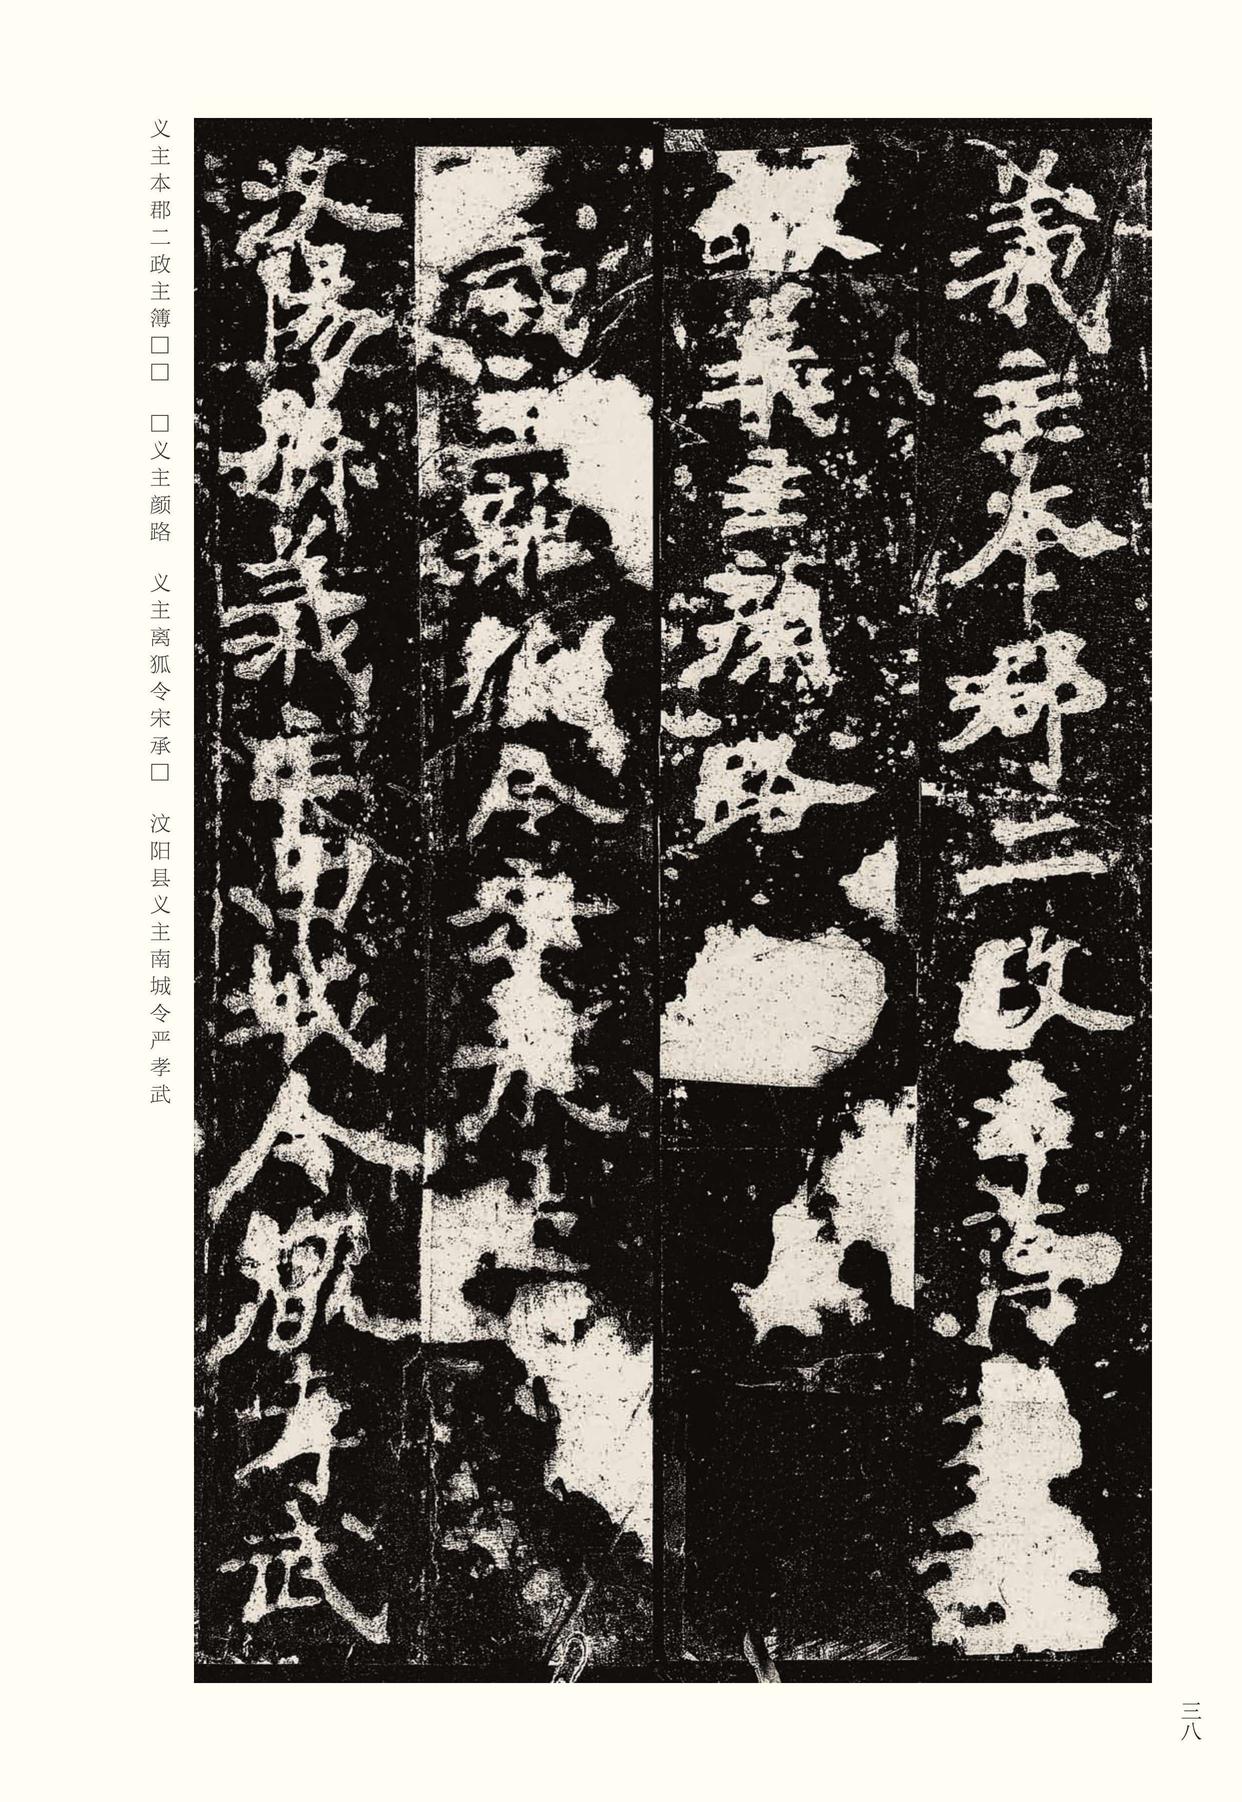 義主本郡二政主簿
義主顏路
義主離狐令宋承
汶陽縣義主南城令嚴孝武
义主本郡二政主簿□□　□义主颜路　义主离狐令宋承□　汶阳县义主南城令严孝武
三八